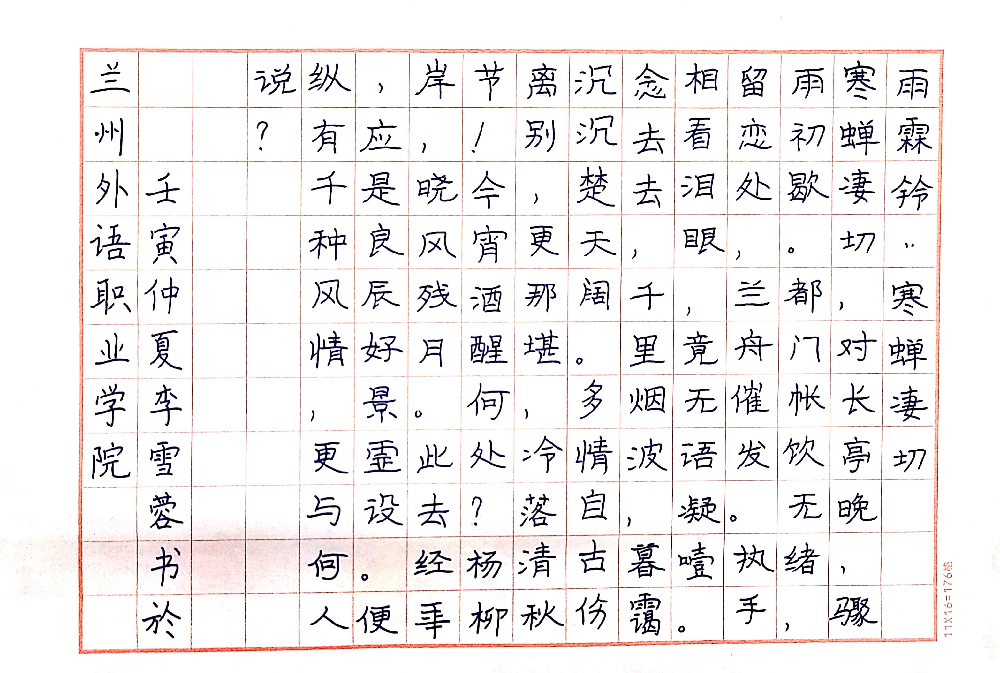 雨霖铃··寒蝉凄切
寒蝉凄切，对长亭晚，骤
雨初歇。都门帐饮无绪，
留恋处，兰舟催发。执手
相看泪眼，竟无语凝噎。
念去去，千里烟波，暮霭
沉沉楚天阔。多情自古伤
离别，更那堪，冷落清秋
节！今宵酒醒何处？杨柳
岸，晓风残月。此去经年
，应是良辰好景虚设。便
纵有千种风情，更与何人
说？
壬寅仲夏李雪蓉书於
兰州外语职业学院
11X16=176格